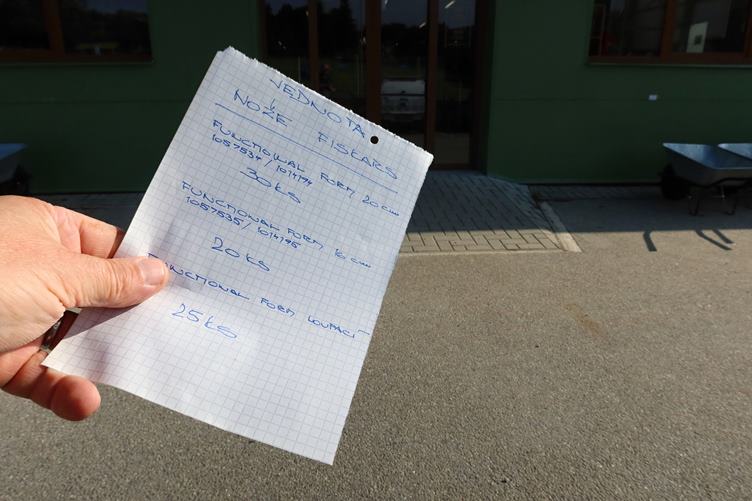 JEDNOTA
NOŽE FISKARS
FUNCTIONAL FORM 20 cm
1057534/1014194
30KS
FUNCTIONAL FORM 16 cm
1057535/1014195
20KS
FUNCTIONAL FORM LOUPACÍ
25KS